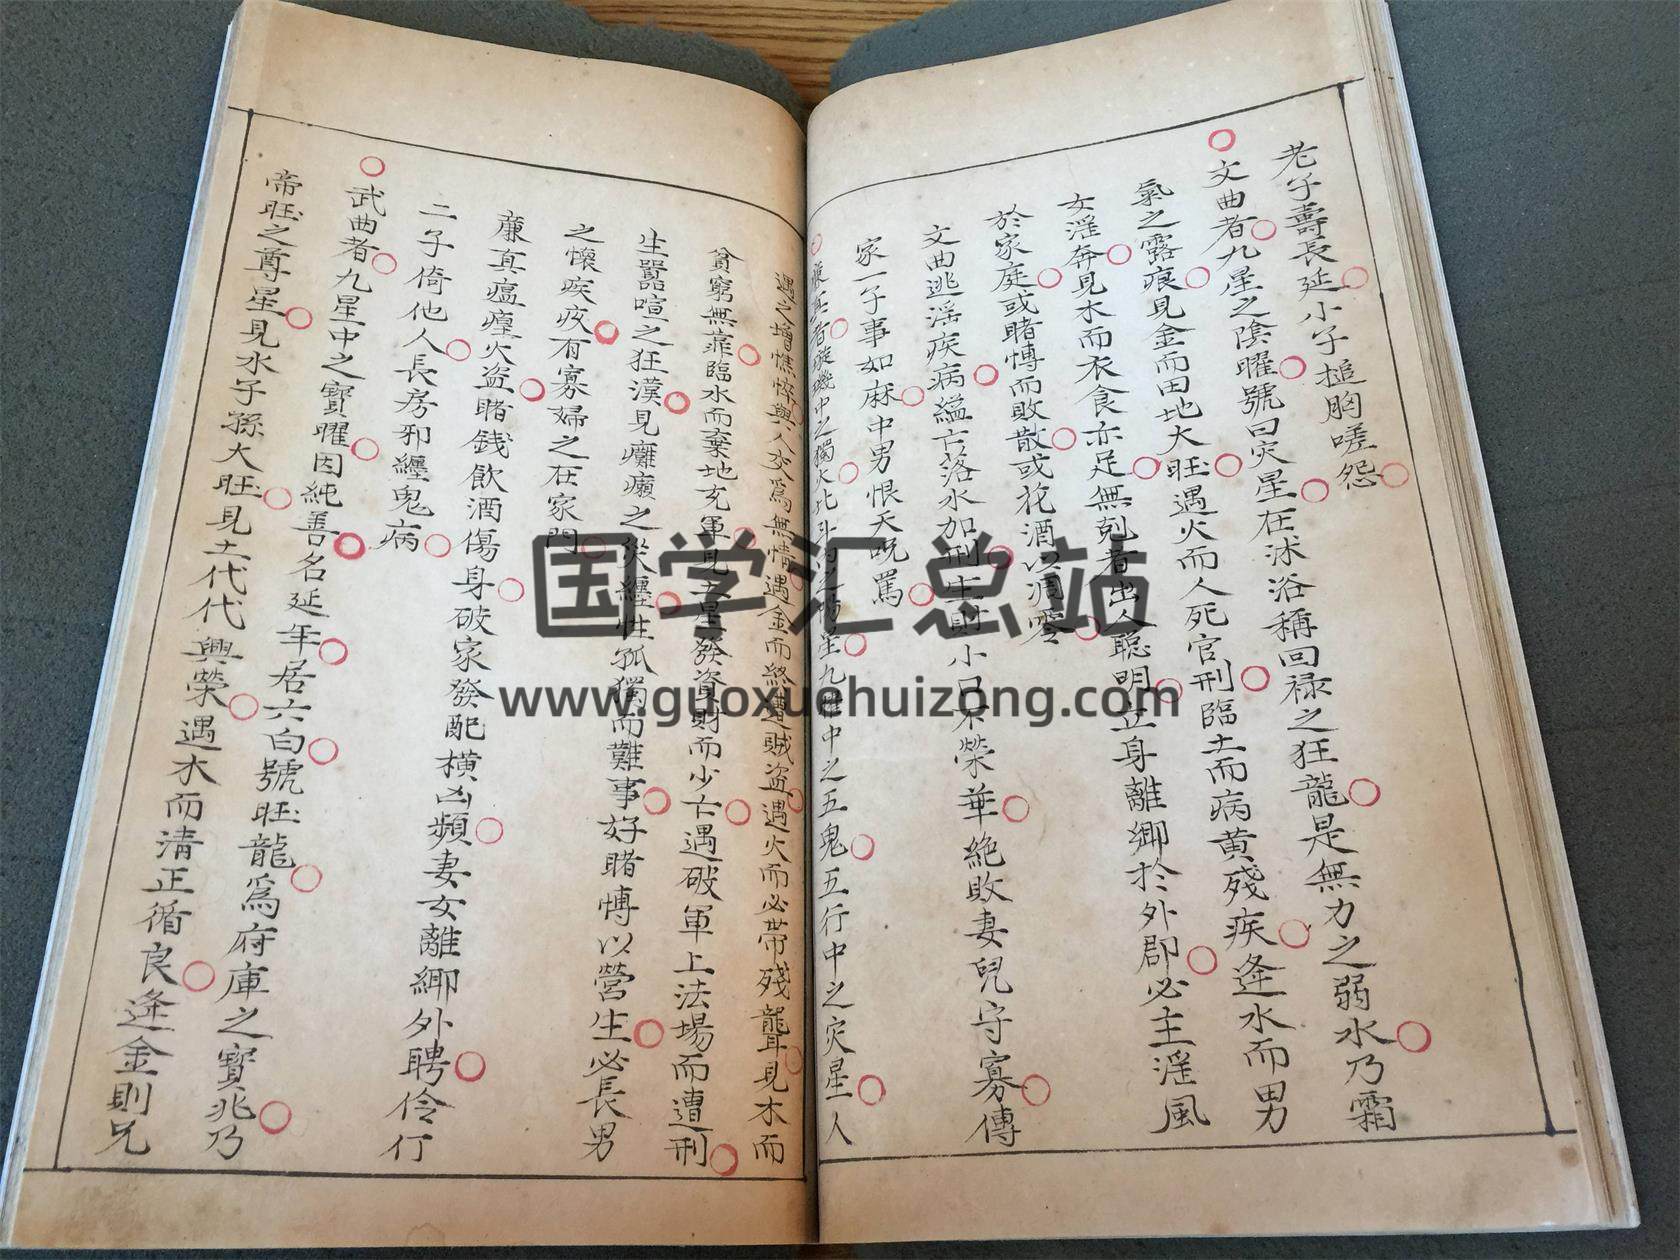 老子壽長延小子搥胸嗟怨
文曲者九星之陰曜號曰灾星在沭浴稱回禄之狂龍是無力之弱水乃霜
氣之露痕見金而田地大旺遇火而人死官刑臨土而病黄殘疾逢水而男
女淫奔見木而衣食亦足無剋者出人聰明立身離鄉於外郡必主淫風
於家庭或賭愽而敗散或花酒以凋零
文曲逃淫疾病縊亡落水加刑主財小口不榮華絶敗妻兒守寡傳
家一子事如麻中男恨天呪罵
廉真者璇璣中之獨火北斗内之陽星九曜中之五鬼五行中之灾星人
遇之增憔悴與人交爲無情遇金而終遭賊盗遇火而必带殘聾見木而
貧窮無靠臨水而棄地充軍見土星發資財而少亡遇破軍上法場而遭刑
生嚚喧之狂漢見癱癩之災纏性孤獨而難事好賭愽以營生必長男
之懷疾疚有寡婦之在家門
廉真瘟㾮火盗賭錢飲酒傷身破家發配横凶頻妻女離鄉外聘伶仃
二子倚他人長房邪纏鬼病
武曲者九星中之寶曜因純善名延年居六白號旺龍爲府庫之寶兆乃
帝旺之尊星見水子孫大旺見土代代興榮遇木而清正循良逢金則兄
国学汇总站
www.guoxuehuizong.com